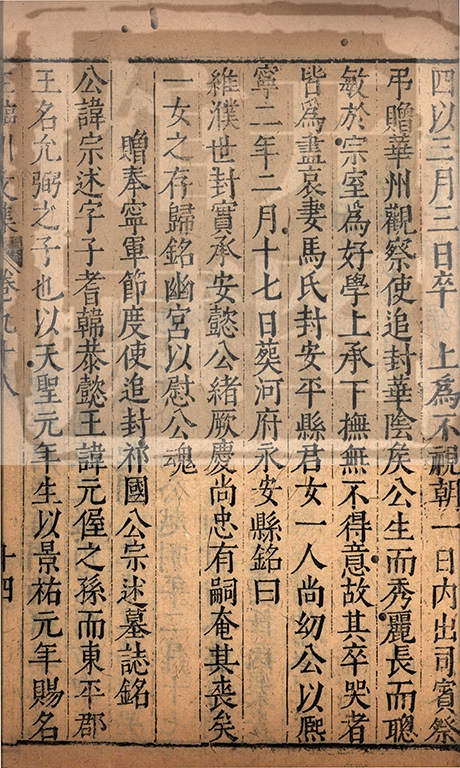 四以三月三日卒　上爲不視朝一日内出司賓祭
弔贈華州觀察使追封華陰侯公生而秀麗長而聰
敏於宗室爲好學上承下撫無不得意故其卒哭者
皆爲盡哀妻馬氏封安平縣君女一人尚幼公以熈
寧二年二月十七日葬河府永安縣銘曰
維濮世封實承安懿公緒厥慶尚忠有嗣奄其喪矣
一女之存歸銘幽宮以慰公魂
贈奉寧軍節度使追封祁國公宗述墓誌銘
公諱宗述字子耆韓恭懿王諱元偓之孫而東平郡
王名允弼之子也以天聖元年生以景祐元年賜名
王臨川文集　卷九十八　十四